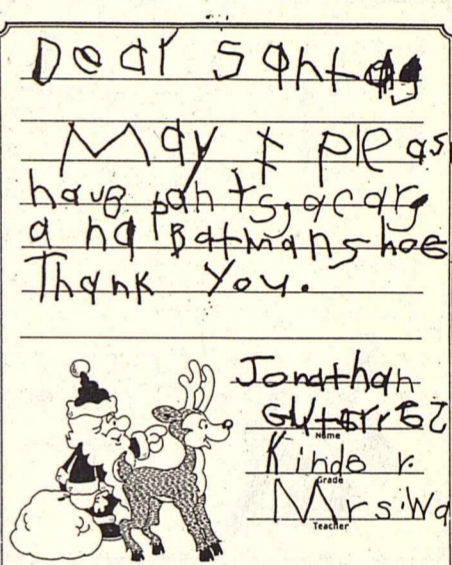 Dear Santa,
May I pleas
have pants, a car,
and Batman shoes
Thank You.
Jonathan
GutierrEZ
Name
Kinder.
Grade
Mrs. Wa
Teacher